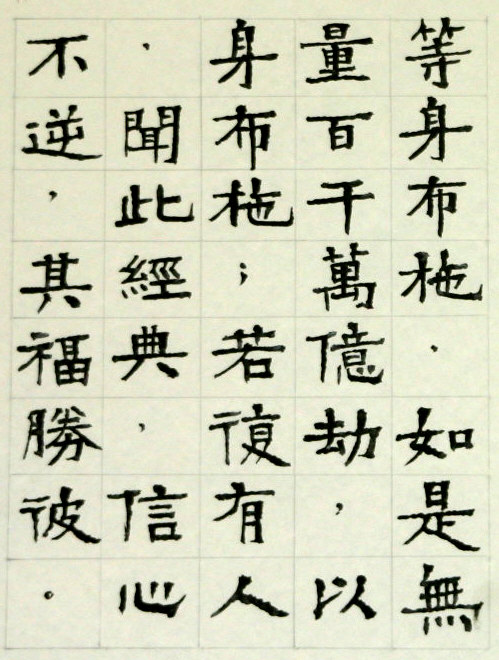 等身布施.如是無
量百千萬億劫,以
身布施;若復有人
,聞此經典,信心
不逆,其福勝彼.